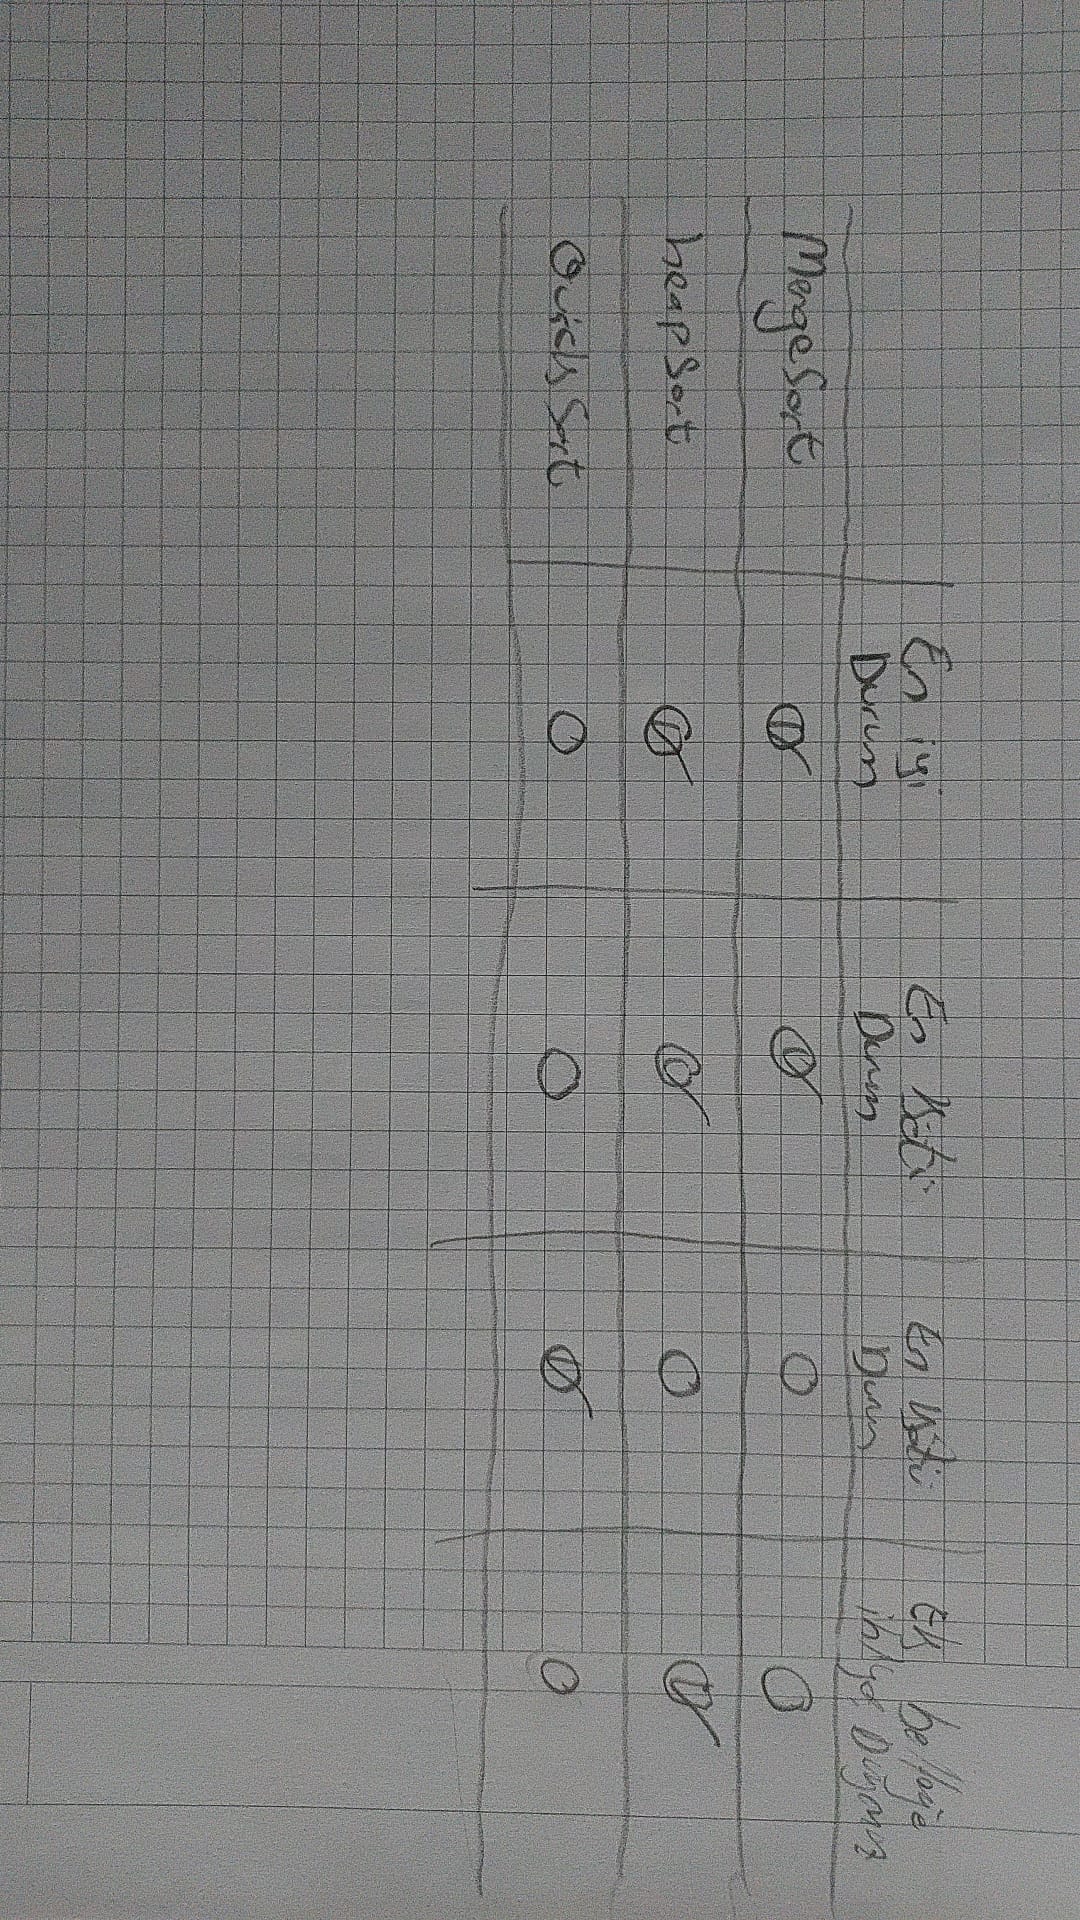 En iyi Durum
En Kötü Durum
En Kötü Durum
Ek belleğe ihtiyaç Duymaz
MergeSort
heapSort
QuickSort